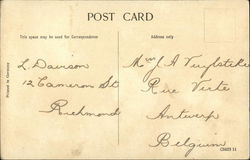 POST CARD
This space may be used for Correspondence
Address only
L. Davison
12 Cameron St
Richmond
Mrs J. A Vuylsteke
Rue Verte
Antwerp
Belgium
Printed in Germany